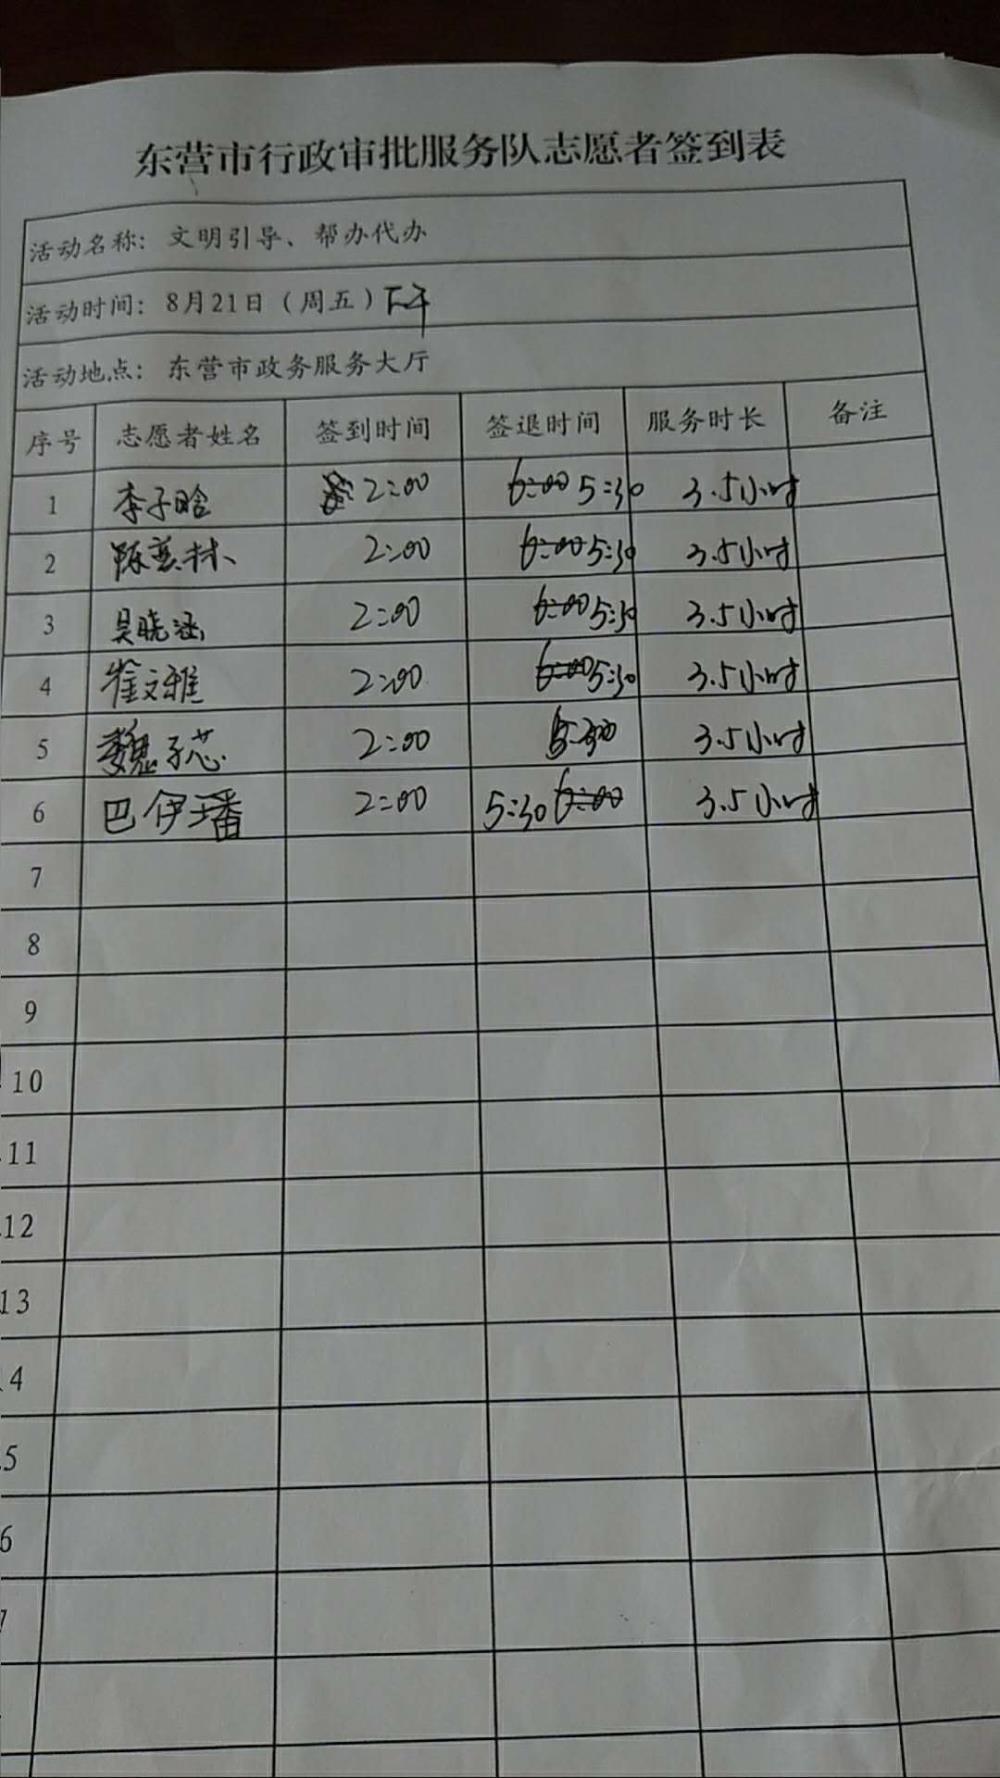 东营市行政审批服务队志愿者签到表
活动名称：文明引导、帮办代办
活动时间：8月21日（周五）下午
活动地点：东营市政务服务大厅
序号 志愿者姓名 签到时间 签退时间 服务时长 备注
1 李子晗 2:00 6:00 5:30 3.5小时
2 陈 林 2:00 6:00 5:30 3.5小时
3 吴晓涵 2:00 6:00 5:30 3.5小时
4 崔文雅 2:00 6:00 5:30 3.5小时
5 魏子芯 2:00 5:30 3.5小时
6 巴伊璠 2:00 5:30 6:00 3.5小时
7
8
9
10
11
12
13
4
5
6
7